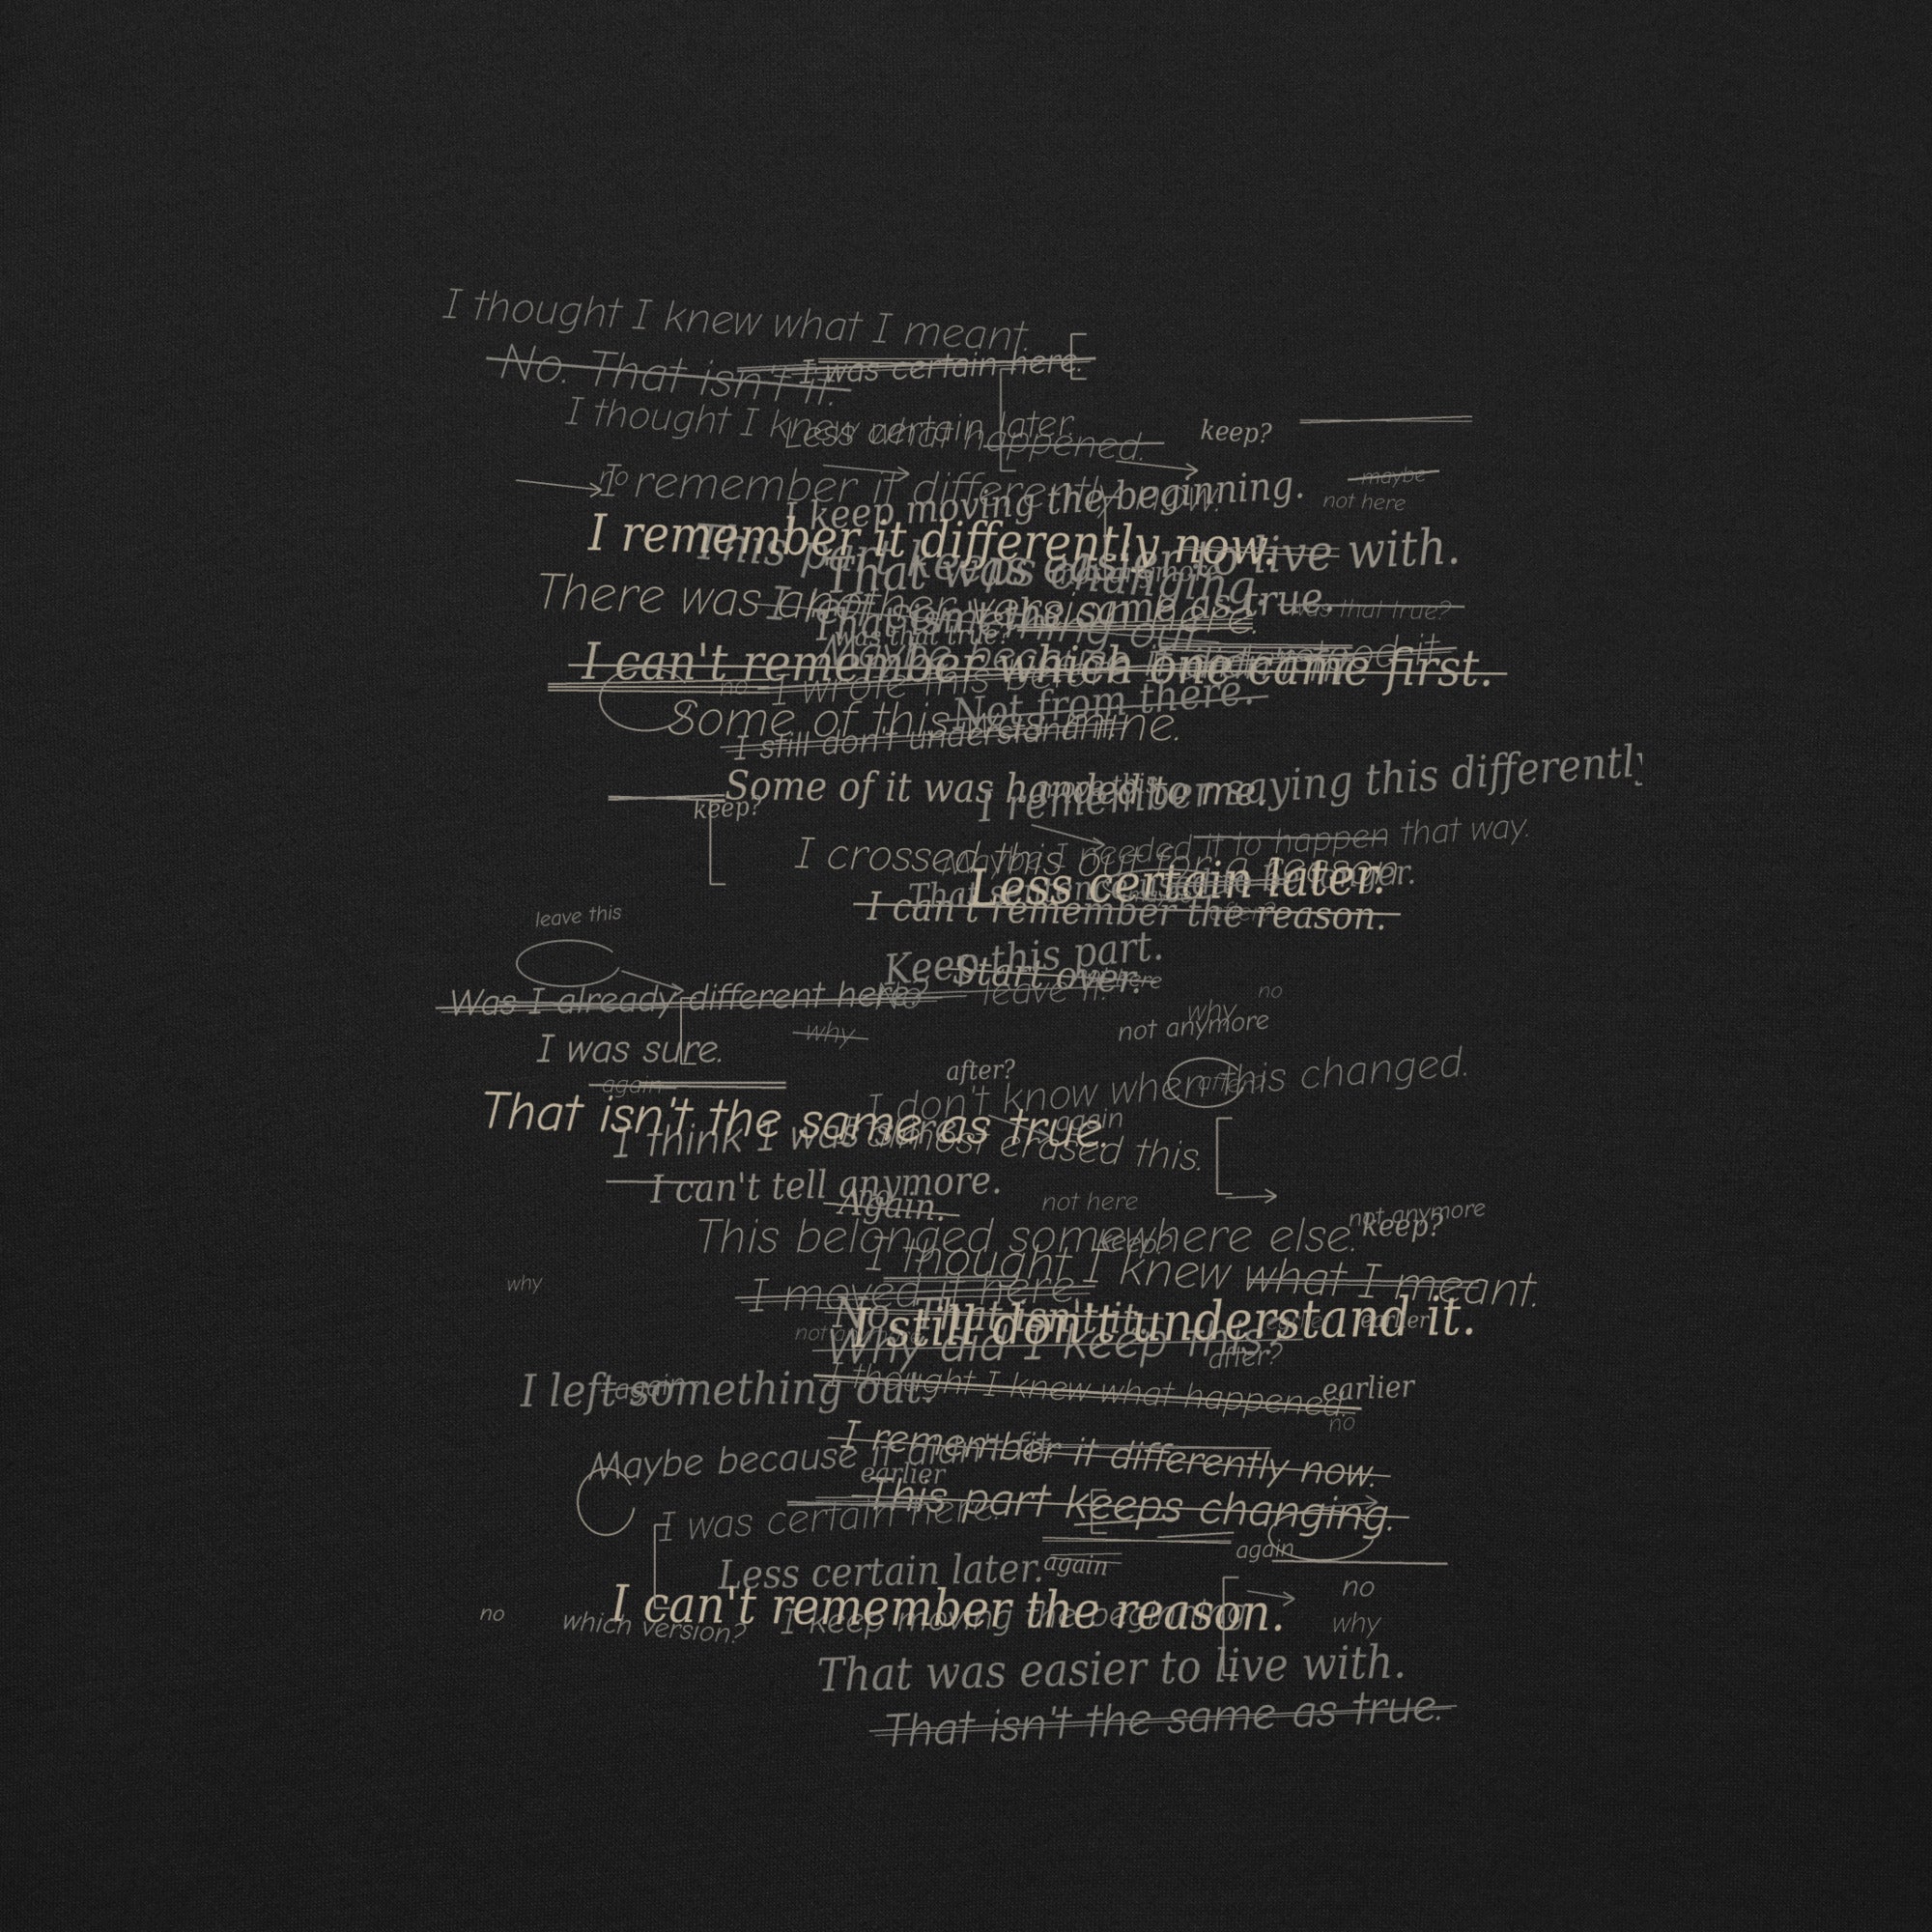 I thought I knew what I meant.
No. That isn't it.
I was certain here.
I thought I knew what happened.
Less certain later.
keep?
maybe
not here
no
I remember it differently now.
I keep moving the beginning.
I remember it differently now.
This part keeps changing.
That was easier to live with.
There was another version here.
That isn't the same as true.
was that true?
was that true?
I can't remember which one came first.
no
I wrote this before
Not from there.
Some of this was mine.
I still don't understand it.
Some of it was handed to me.
I remember saying this differently
keep?
Maybe I needed it to happen that way.
I crossed this out for a reason.
Less certain later.
I can't remember the reason.
leave this
Keep this part.
Start over.
Was I already different here?
No leave it.
no
why
not anymore
why
I was sure.
after?
I don't know when this changed.
again
That isn't the same as true.
again
I think I was
almost erased this.
I can't tell anymore.
Again.
not here
not anymore
keep?
This belonged somewhere else.
keep?
I thought I knew what I meant.
why
I moved it here.
No. That isn't it.
I still don't understand it.
earlier
Why did I keep this?
after?
I left something out.
again
I thought I knew what happened.
earlier
no
I remember it differently now.
Maybe because it didn't fit.
earlier
This part keeps changing.
I was certain here.
again
Less certain later.
again
no
I can't remember the reason.
I keep moving the beginning.
no
which version?
why
That was easier to live with.
That isn't the same as true.